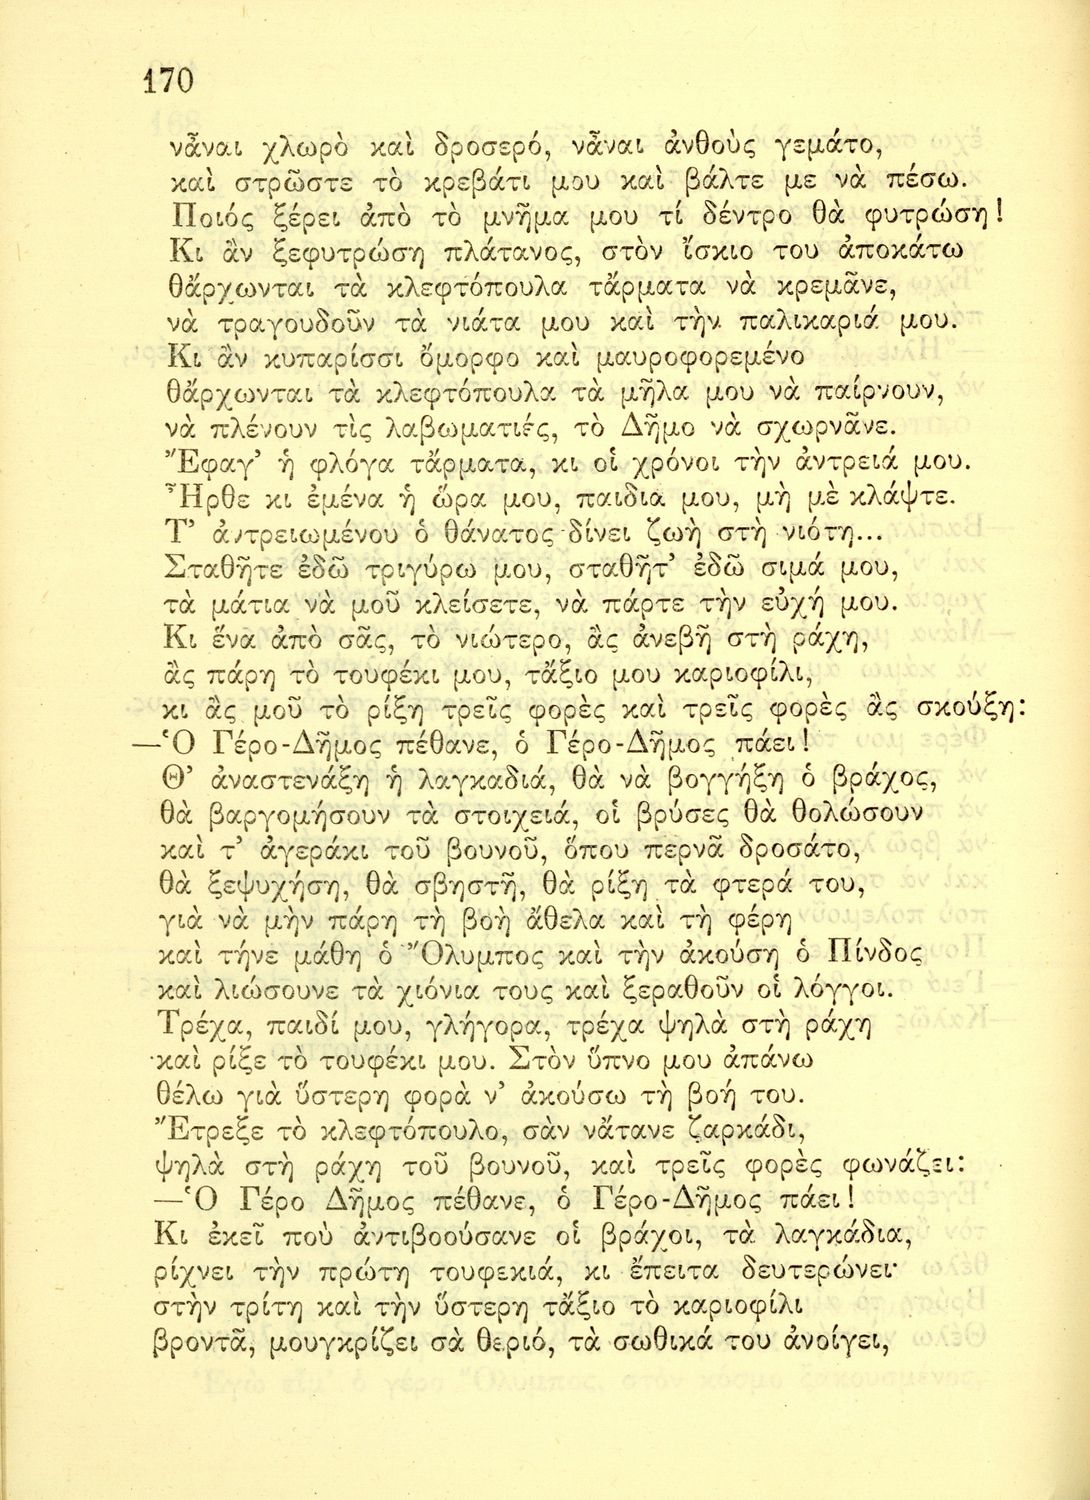 170
νἆναι χλωρὸ καὶ δροσερό, νἆναι ἀνθοὺς γεμάτο,
καὶ στρῶστε τὸ κρεβάτι μου καὶ βάλτε με νὰ πέσω.
Ποιός ξέρει ἀπὸ τὸ μνῆμα μου τί δέντρο θὰ φυτρώση!
Κι ἂν ξεφυτρώση πλάτανος, στὸν ἴσκιο του ἀποκάτω
θἄρχωνται τὰ κλεφτόπουλα τἄρματα νὰ κρεμᾶνε,
νὰ τραγουδοῦν τὰ νιάτα μου καὶ τὴν παλικαριά μου.
Κι ἂν κυπαρίσσι ὄμορφο καὶ μαυροφορεμένο
θἄρχωνται τὰ κλεφτόπουλα τὰ μῆλα μου νὰ παίρνουν,
νὰ πλένουν τὶς λαβωματιές, τὸ Δῆμο νὰ σχωρνᾶνε.
Ἔφαγ’ ἡ φλόγα τἄρματα, κι οἱ χρόνοι τὴν ἀντρειά μου.
Ἦρθε κι ἐμένα ἡ ὥρα μου, παιδιά μου, μὴ μὲ κλάψτε.
Τ’ ἀντρειωμένου ὁ θάνατος δίνει ζωὴ στὴ νιότη...
Σταθῆτε ἐδῶ τριγύρω μου, σταθῆτ’ ἐδῶ σιμά μου,
τὰ μάτια νὰ μοῦ κλείσετε, νὰ πάρτε τὴν εὐχή μου.
Κι ἕνα ἀπὸ σᾶς, τὸ νιώτερο, ἂς ἀνεβῆ στὴ ράχη,
ἂς πάρη τὸ τουφέκι μου, τἄξιο μου καριοφίλι,
κι ἂς μοῦ τὸ ρίξη τρεῖς φορὲς καὶ τρεῖς φορὲς ἂς σκούξη:
—Ὁ Γέρο-Δῆμος πέθανε, ὁ Γέρο-Δῆμος πάει!
Θ’ ἀναστενάξη ἡ λαγκαδιά, θὰ νὰ βογγήξη ὁ βράχος,
θὰ βαργομήσουν τὰ στοιχειά, οἱ βρύσες θὰ θολώσουν
καὶ τ’ ἀγεράκι τοῦ βουνοῦ, ὅπου περνᾶ δροσάτο,
θὰ ξεψυχήση, θὰ σβηστῆ, θὰ ρίξη τὰ φτερά του,
γιὰ νὰ μὴν πάρη τὴ βοὴ ἄθελα καὶ τὴ φέρη
καὶ τήνε μάθη ὁ Ὄλυμπος καὶ τὴν ἀκούση ὁ Πίνδος
καὶ λιώσουνε τὰ χιόνια τους καὶ ξεραθοῦν οἱ λόγγοι.
Τρέχα, παιδί μου, γλήγορα, τρέχα ψηλὰ στὴ ράχη
καὶ ρίξε τὸ τουφέκι μου. Στὸν ὕπνο μου ἀπάνω
θέλω γιὰ ὕστερη φορὰ ν’ ἀκούσω τὴ βοή του.
Ἔτρεξε τὸ κλεφτόπουλο, σὰν νἄτανε ζαρκάδι,
ψηλὰ στὴ ράχη τοῦ βουνοῦ, καὶ τρεῖς φορὲς φωνάζει:
—Ὁ Γέρο Δῆμος πέθανε, ὁ Γέρο-Δῆμος πάει!
Κι ἐκεῖ ποὺ ἀντιβοούσανε οἱ βράχοι, τὰ λαγκάδια,
ρίχνει τὴν πρώτη τουφεκιά, κι ἔπειτα δευτερώνει·
στὴν τρίτη καὶ τὴν ὕστερη τἄξιο τὸ καριοφίλι
βροντᾶ, μουγκρίζει σὰ θεριό, τὰ σωθικά του ἀνοίγει,